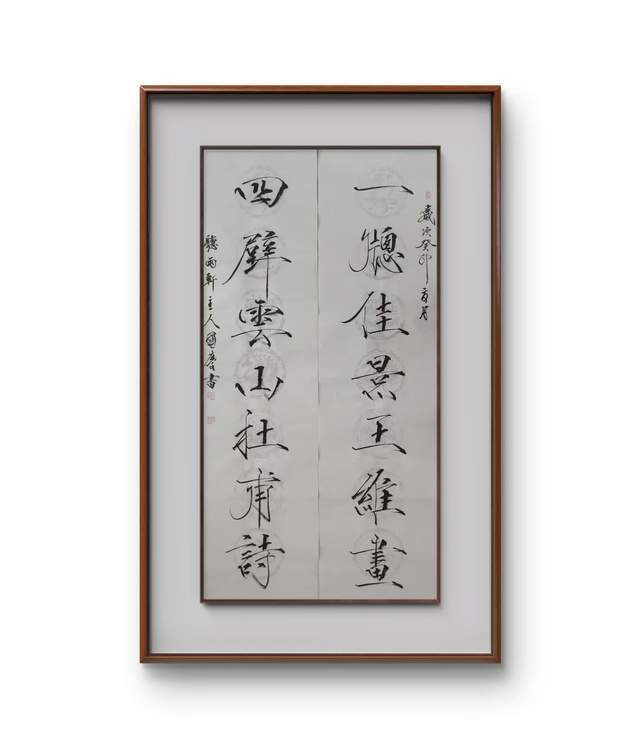 歲次癸卯夏月
一牕佳景王維畫
四壁雲山杜甫詩
聽雨軒主人國慶書